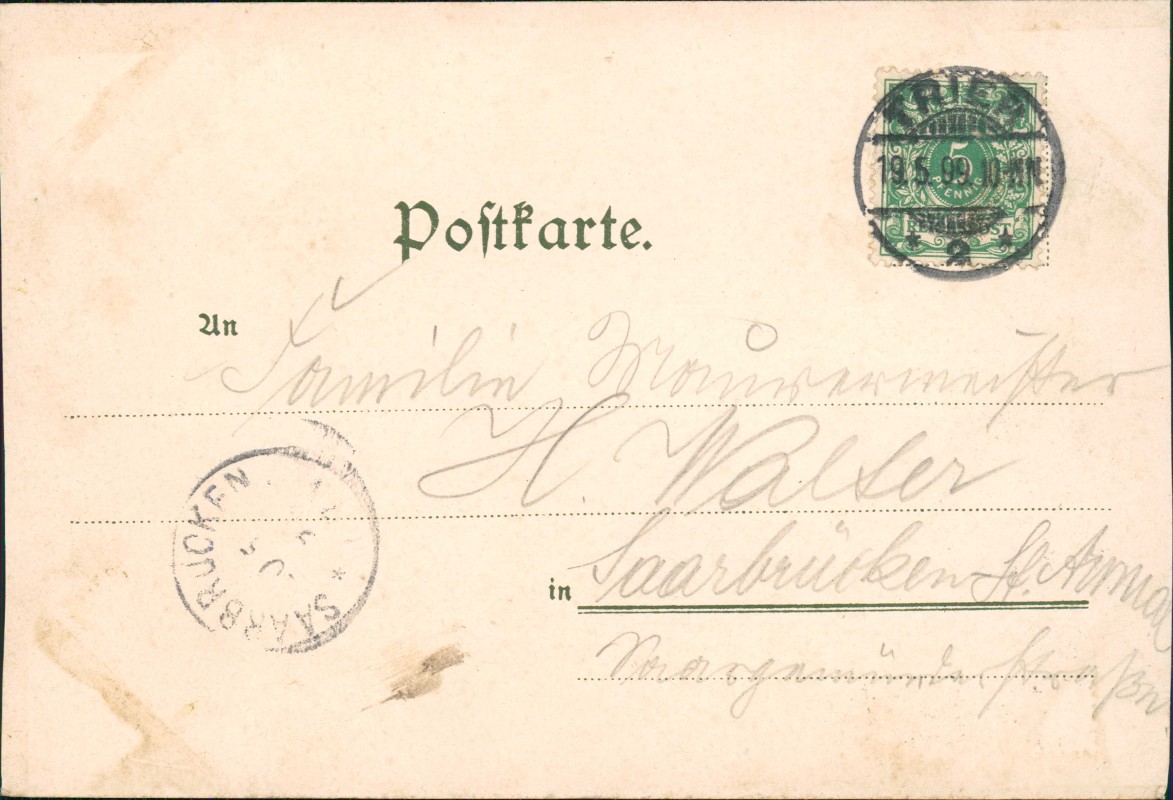 TRIER
19.5.99.10-11N.
* 2 *
5
PFENNIG
REICHSPOST
Postkarte.
An Familie Maurermeister
H. Walter
in Saarbrücken-St. Arnual
Saargemünder Straße
SAARBRÜCKEN *